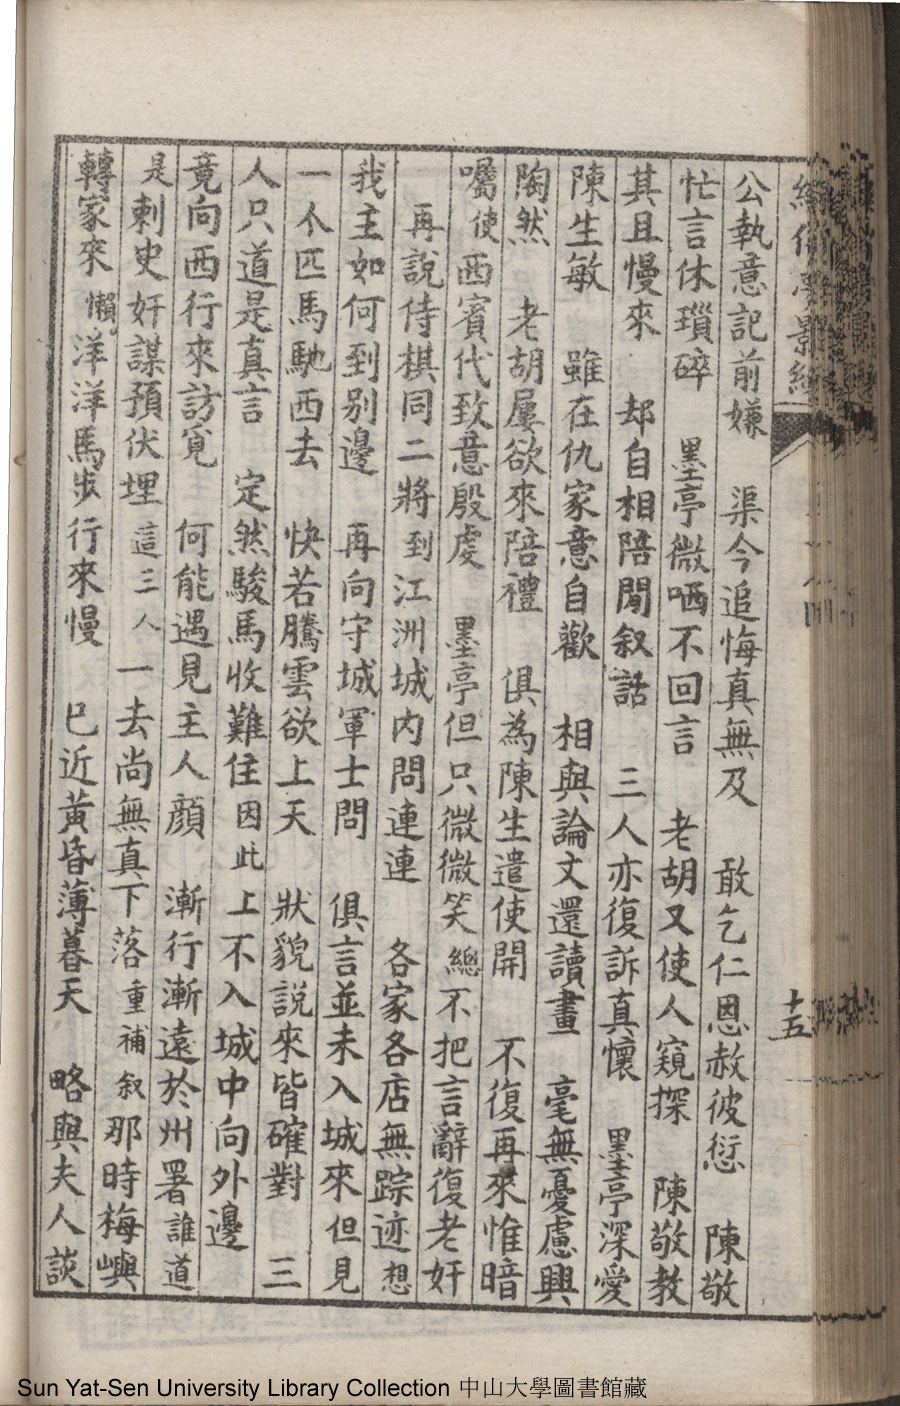 十五
公執意記前嫌　渠今追悔真無及　敢乞仁恩赦彼愆　陳敬
忙言休瑣碎　墨亭微哂不回言　老胡又使人窺探　陳敬教
其且慢來　却自相陪閒叙話　三人亦復訴真懷　墨亭深愛
陳生敏　雖在仇家意自歡　相與論文還讀畫　毫無憂慮興
陶然　老胡屢欲來陪禮　俱為陳生遣使開　不復再來惟暗
囑使西賓代致意殷虔　墨亭但只微微笑總不把言辭復老奸
再說侍棋同二將到江洲城内問連連　各家各店無踪迹想
我主如何到别邊　再向守城軍士問　俱言並未入城來但見
一个匹馬馳西去　快若騰雲欲上天　狀貌說來皆確對　三
人只道是真言　定然駿馬收難住因此上不入城中向外邊
竟向西行來訪覓　何能遇見主人顔　漸行漸遠於州署誰道
是刺史奸謀預伏埋這三人一去尚無真下落重補叙那時梅嶼
轉家來懶洋洋馬步行來慢　已近黃昏薄暮天　略與夫人談
Sun Yat-Sen University Library Collection 中山大學圖書館藏